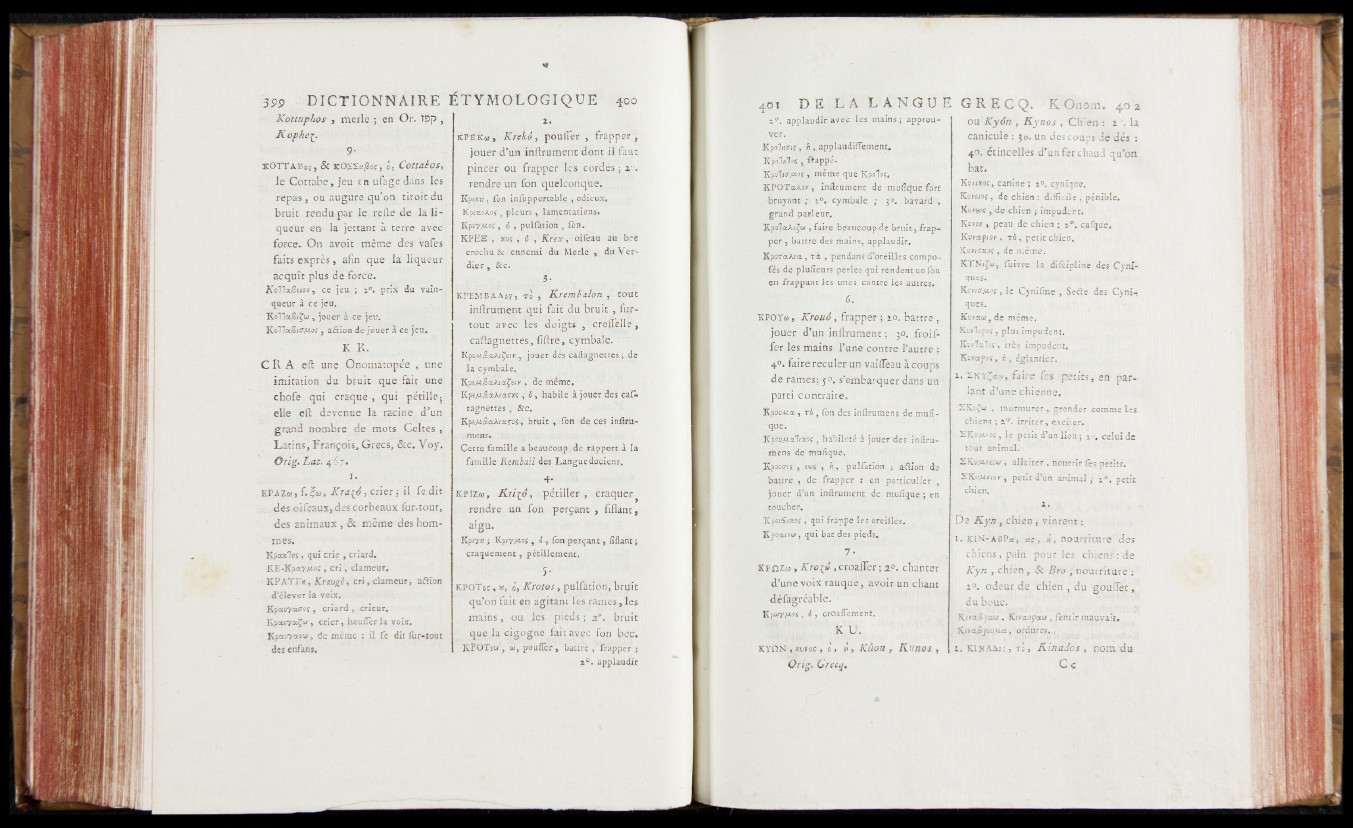 399 DICTIONNAIRE ÉTYMOLOGIQUE 400
Kottuphos , merle ; en Or. קפד ,
Kophez.
9.
ΚΟΤΤΑΒος, & ΚΟΣΣαβος, ὁ, Cottabos,
le Cottabe, jeu en usage dans les
repas, ou augure qu'on tiroit du
bruit rendu par le reste de la li-
queur en la jettant à terre avec
force. On avoit même des vases
faits exprès, afin que la liqueur
acquit plus de force.
Κοτταβειον, ce jeu ; 2°. prix du vain-
queur à ce jeu.
Κοτταβιζω, jouer à ce jeu.
Κοτταβισμος, action de jouer à ce jeu.
K R.
CRA est une Onomatopée, une
imitation du bruit que fait une
chose qui craque, qui pétille;
elle est devenue la racine d'un
grand nombre de mots Celtes,
Latins, François, Grecs, &c. Voy.
Orig. Lat. 467.
1.
ΚΡΑΖω, f. ξω, Krazó, crier ; il se dit
des oiseaux, des corbeaux sur-tout,
des animaux, & même des hom-
mes.
Κρακτης, qui crie, criard.
ΚΕ-Κραγμος, cri, clameur.
ΚΡΑΥΓη, Kraugê, cri, clameur, action
d'élever la voix.
Κραυγασος, criard, crieur.
Κραυγαζω, crier, hausser la voix.
Κραυγανω, de même : il se dit sur-tout
des enfans.
2.
ΚΡΕΚω, Krekó, pousser, frapper,
jouer d'un instrument dont il faut
pincer ou frapper les cordes ; 2°.
rendre un son quelconque.
son insupportable, odieux.
pleurs, lamentations.
Κρεγμος, ὁ, pulsation, son.
ΚΡΕΞ, κος, ἡ, Krex, oiseau au bec
crochu & ennemi du Merle, du Ver-
dier, &c.
3.
ΚΡΕΜΒΑΛον, το, Krembalon, tout
instrument qui fait du bruit, sur-
tout avec les doigts, cresselle,
castagnettes, sistre, cymbale.
Κρεμβαλιζειν, jouer des castagnettes ; de
la cymbale.
Κρεμβαλιαζειν, de même.
habile à jouer des cas-
tagnettes, &c.
Κρεμβαλιαςυς, bruit, son de ces instru-
mens.
Cette famille a beaucoup de rapport à la
famille Rembail des Languedociens.
4.
ΚΡΙΖω, Krizó, pétiller, craquer,
rendre un son perçant, sifflant,
aigu.
Κριγη ; Κριγμος, ὁ, son perçant, sifflant ;
craquement, pétillement.
5.
ΚΡΟΤος, ου, ὁ, Krotos, pulsation, bruit
qu'on fait en agitant les rames, les
mains, ou les pieds ; 2°. bruit
que la cigogne fait avec son bec.
ΚΡΟΤεω, ω, pousser, battre, frapper ;
2°. applaudir
401 DE LA LANGUE GRECQ. K Onom. 402
2°. applaudir avec les mains ; approu-
ver.
Κροτησις, ἡ, applaudissement.
Κροτητος, frappé.
Κροτισμος, même que Κροτος.
ΚΡΟΤαλον, instrument de musique fort
bruyant ; 2°. cymbale ; 3°. bavard,
grand parleur.
Κροταλιζω, faire beaucoup de bruit, frap-
per, battre des mains, applaudir.
Κροταλια, τὰ, pendans d'oreilles compo-
sés de plusieurs perles qui rendent un son
en frappant les unes contre les autres.
6.
ΚΡΟΥω, Krouó, frapper ; 2°. battre,
jouer d'un instrument ; 3°. frois-
ser les mains l'une contre l'autre ;
4°. faire reculer un vaisseau à coups
de rames ; 5°. s'embarquer dans un
parti contraire.
Κρουμα, τὸ, son des instrumens de musi-
que.
habileté à jouer des instru-
mens de musique.
Κρουσις, εως, ἡ, pulsation ; action de
battre, de frapper : en particulier,
jouer d'un instrument de musique ; en
toucher.
qui frappe les oreilles.
qui bat des pieds.
7.
ΚΡΩΖω, Krozó, croasser ; 2°. chanter
d'une voix rauque, avoir un chant
désagréable.
Κρωγμος, ὁ, croassement.
K U.
ΚΥΩΝ, κυνος, ὁ, ἡ, Kûon, Kunos,
Orig. Grecq.
ou Kyón, Kynos, Chien : 2°. la
canicule : 3°. un des coups de dés :
4°. étincelles d'un fer chaud qu'on
bat.
Κυνικος, canine ; 2°. cynique.
de chien : difficile, pénible.
Κυνεος, de chien ; impudent.
Κυνεη, peau de chien ; 2°. casque.
Κυναριον, τὸ, petit chien.
Κυνισκος, de même.
ΚΥΝιζω, suivre la discipline des Cyni-
ques.
Κυνισμος, le Cynisme, Secte des Cyni-
ques.
Κυναω, de même.
Κυντερος, plus impudent.
Κυντατος, très impudent.
Κυναρος, ἡ, églantier.
1. ΣΚΥζαω, faire ses petits, en par-
lant d'une chienne.
ΣΚυζω, murmurer, gronder comme les
chiens ; 2°. irriter, exciter.
ΣΚυμνος, le petit d'un lion ; 2°. celui de
tout animal.
ΣΚυμνευω, allaiter, nourrir ses petits.
ΣΚυμνιον, petit d'un animal ; 2°. petit
chien.
2.
De Kyn, chien, vinrent :
1. ΚΙΝ-ΑΒΡα, ας, ἡ, nourriture des
chiens, pain pour les chiens : de
Kyn, chien, & Bro, nourriture :
2°. odeur de chien, du gousset,
du bouc.
Κιναβραω, Κιναυραω, sentir mauvais.
Κιναβρευμα, ordures.
2. ΚΙΝΑΔος, τὸ, Kinados, nom du
C c